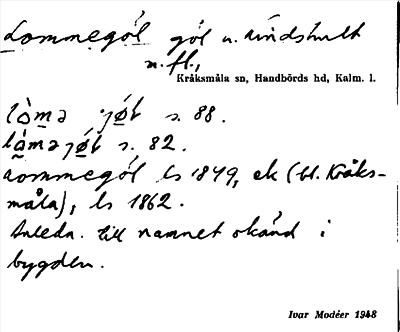 Lommegöl göl u. Rindshult
m. fl.,
Kråksmåla sn, Handbörds hd, Kalm. l.
s. 88.
s. 82.
Lommegöl ls 1849, ek (bl. Kråks-
måla), ls 1862.
Anledn. till namnet okänd i
bygden.
Ivar Modéer 1948